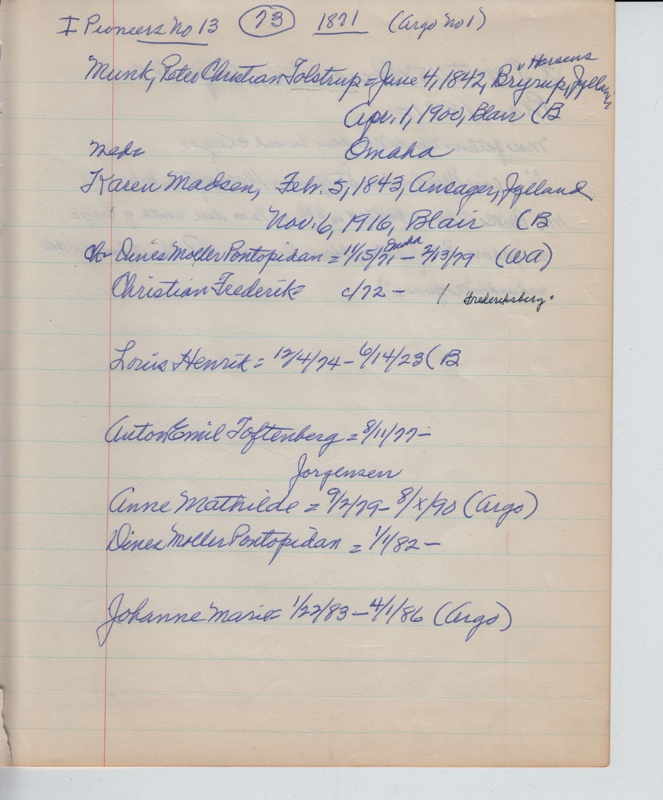 I Pioneers No 13 (23) 1871 (Argo No 1)
Munk, Peter Christian Tolstrup = June 4, 1842, Bryrup, " Horsens Jylland
Apr. 1, 1900, Blair (B
Med: Omaha
Karen Madsen, Feb. 5, 1843, Ansager, Jylland
Nov. 6, 1916, Blair (B
Ch - Dines Moller Pontopidan = 11/15/71 Omaha - 2/13/79 (WA)
Christian Frederik = c/72 - / Frederiksberg =
Louis Henrik = 12/4/74 - 6/14/23 (B
Anton Emil Toftenberg = 8/11/77 -
Jorgensen
Anne Mathilde = 9/2/79 - 8/x/90 (Argo)
Dines Moller Pontopidan = 1/1/82 -
Johanne Marie = 1/22/83 - 4/1/86 (Argo)